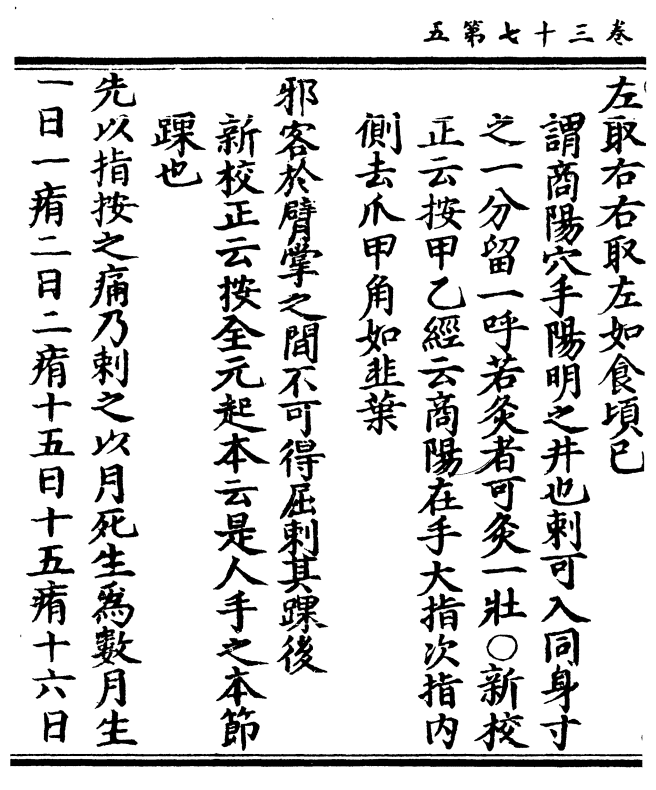 卷三十七第五
左取右右取左如食頃已
謂商陽穴手陽明之井也刺可入同身寸
之一分留一呼若灸者可灸一壯○新校
正云按甲乙經云商陽在手大指次指内
側去爪甲角如韭葉
邪客於臂掌之間不可得屈刺其踝後
新校正云按全元起本云是人手之本節
踝也
先以指按之痛乃刺之以月死生爲數月生
一日一痏二日二痏十五日十五痏十六日